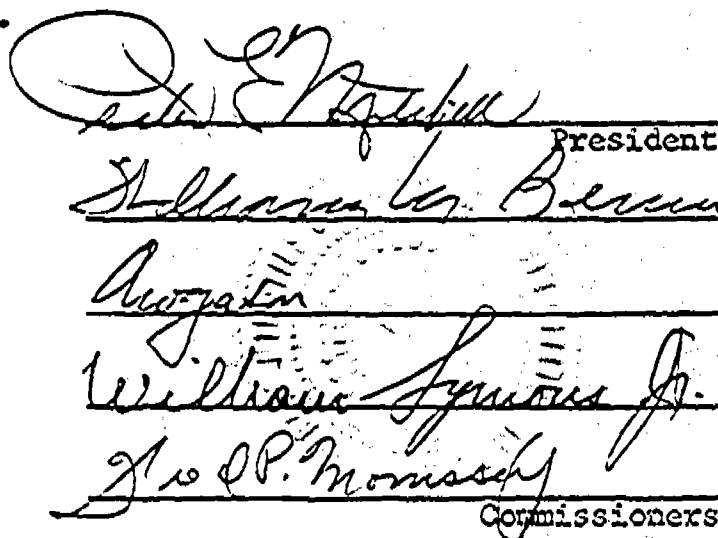 Peter E. Mitchell
President
William M. Bennett
A. W. Gatov
William Symons Jr.
Fred P. Morrissey
Commissioners